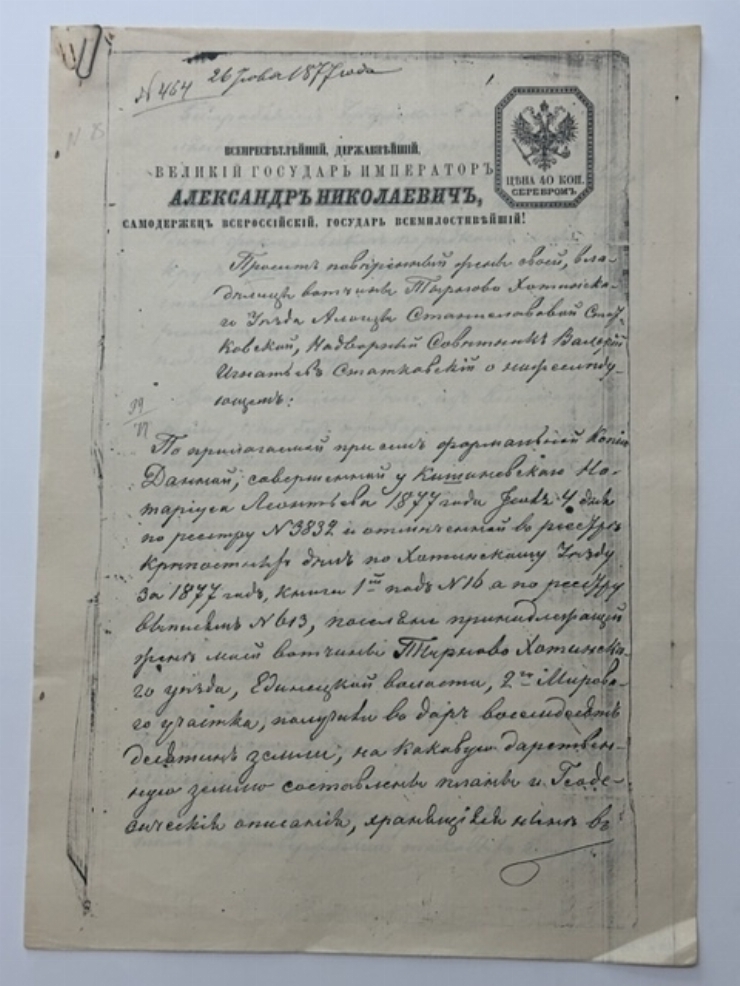 № 464 26 1877 года
ЦѢНА 40 КОП.
СЕРЕБРОМЪ
ВСЕПРЕСВѢТЛѢЙШІЙ, ДЕРЖАВНѢЙШІЙ,
ВЕЛИКІЙ ГОСУДАРЬ ИМПЕРАТОРЪ
АЛЕКСАНДРЪ НИКОЛАЕВИЧЪ,
САМОДЕРЖЕЦЪ ВСЕРОССІЙСКІЙ, ГОСУДАРЬ ВСЕМИЛОСТИВѢЙШІЙ!
Проситъ повѣренный жены своей, вла-
дѣлицы вотчины Тырново Хотинска-
го Уѣзда Станиславовой Стат-
ковской, Надворный Совѣтникъ Валерій
Игнатьевъ Статковскій о нижеслѣду-
ющемъ:
39
77
По прилагаемой при семъ форменной Копіи
Данной, совершенной у Кишиневскаго Но-
таріуса Леонтьева 1877 года 4 дня
по реестру № 3832 и отмѣченной въ реестрѣ
крѣпостныхъ дѣлъ по Хотинскому Уѣзду
за 1877 годъ, книги 1й подъ № 16 а по реестру
№ 613, поселяне принадлежащей
женѣ моей вотчины Тырново Хотинска-
го уѣзда, Единецкой волости, 2го Мирова-
го участка, получили въ даръ восемьдесятъ
десятинъ земли, на каковую дарствен-
ную землю составлены планы и Геоде-
зическія описанія, хранящіяся нынѣ въ